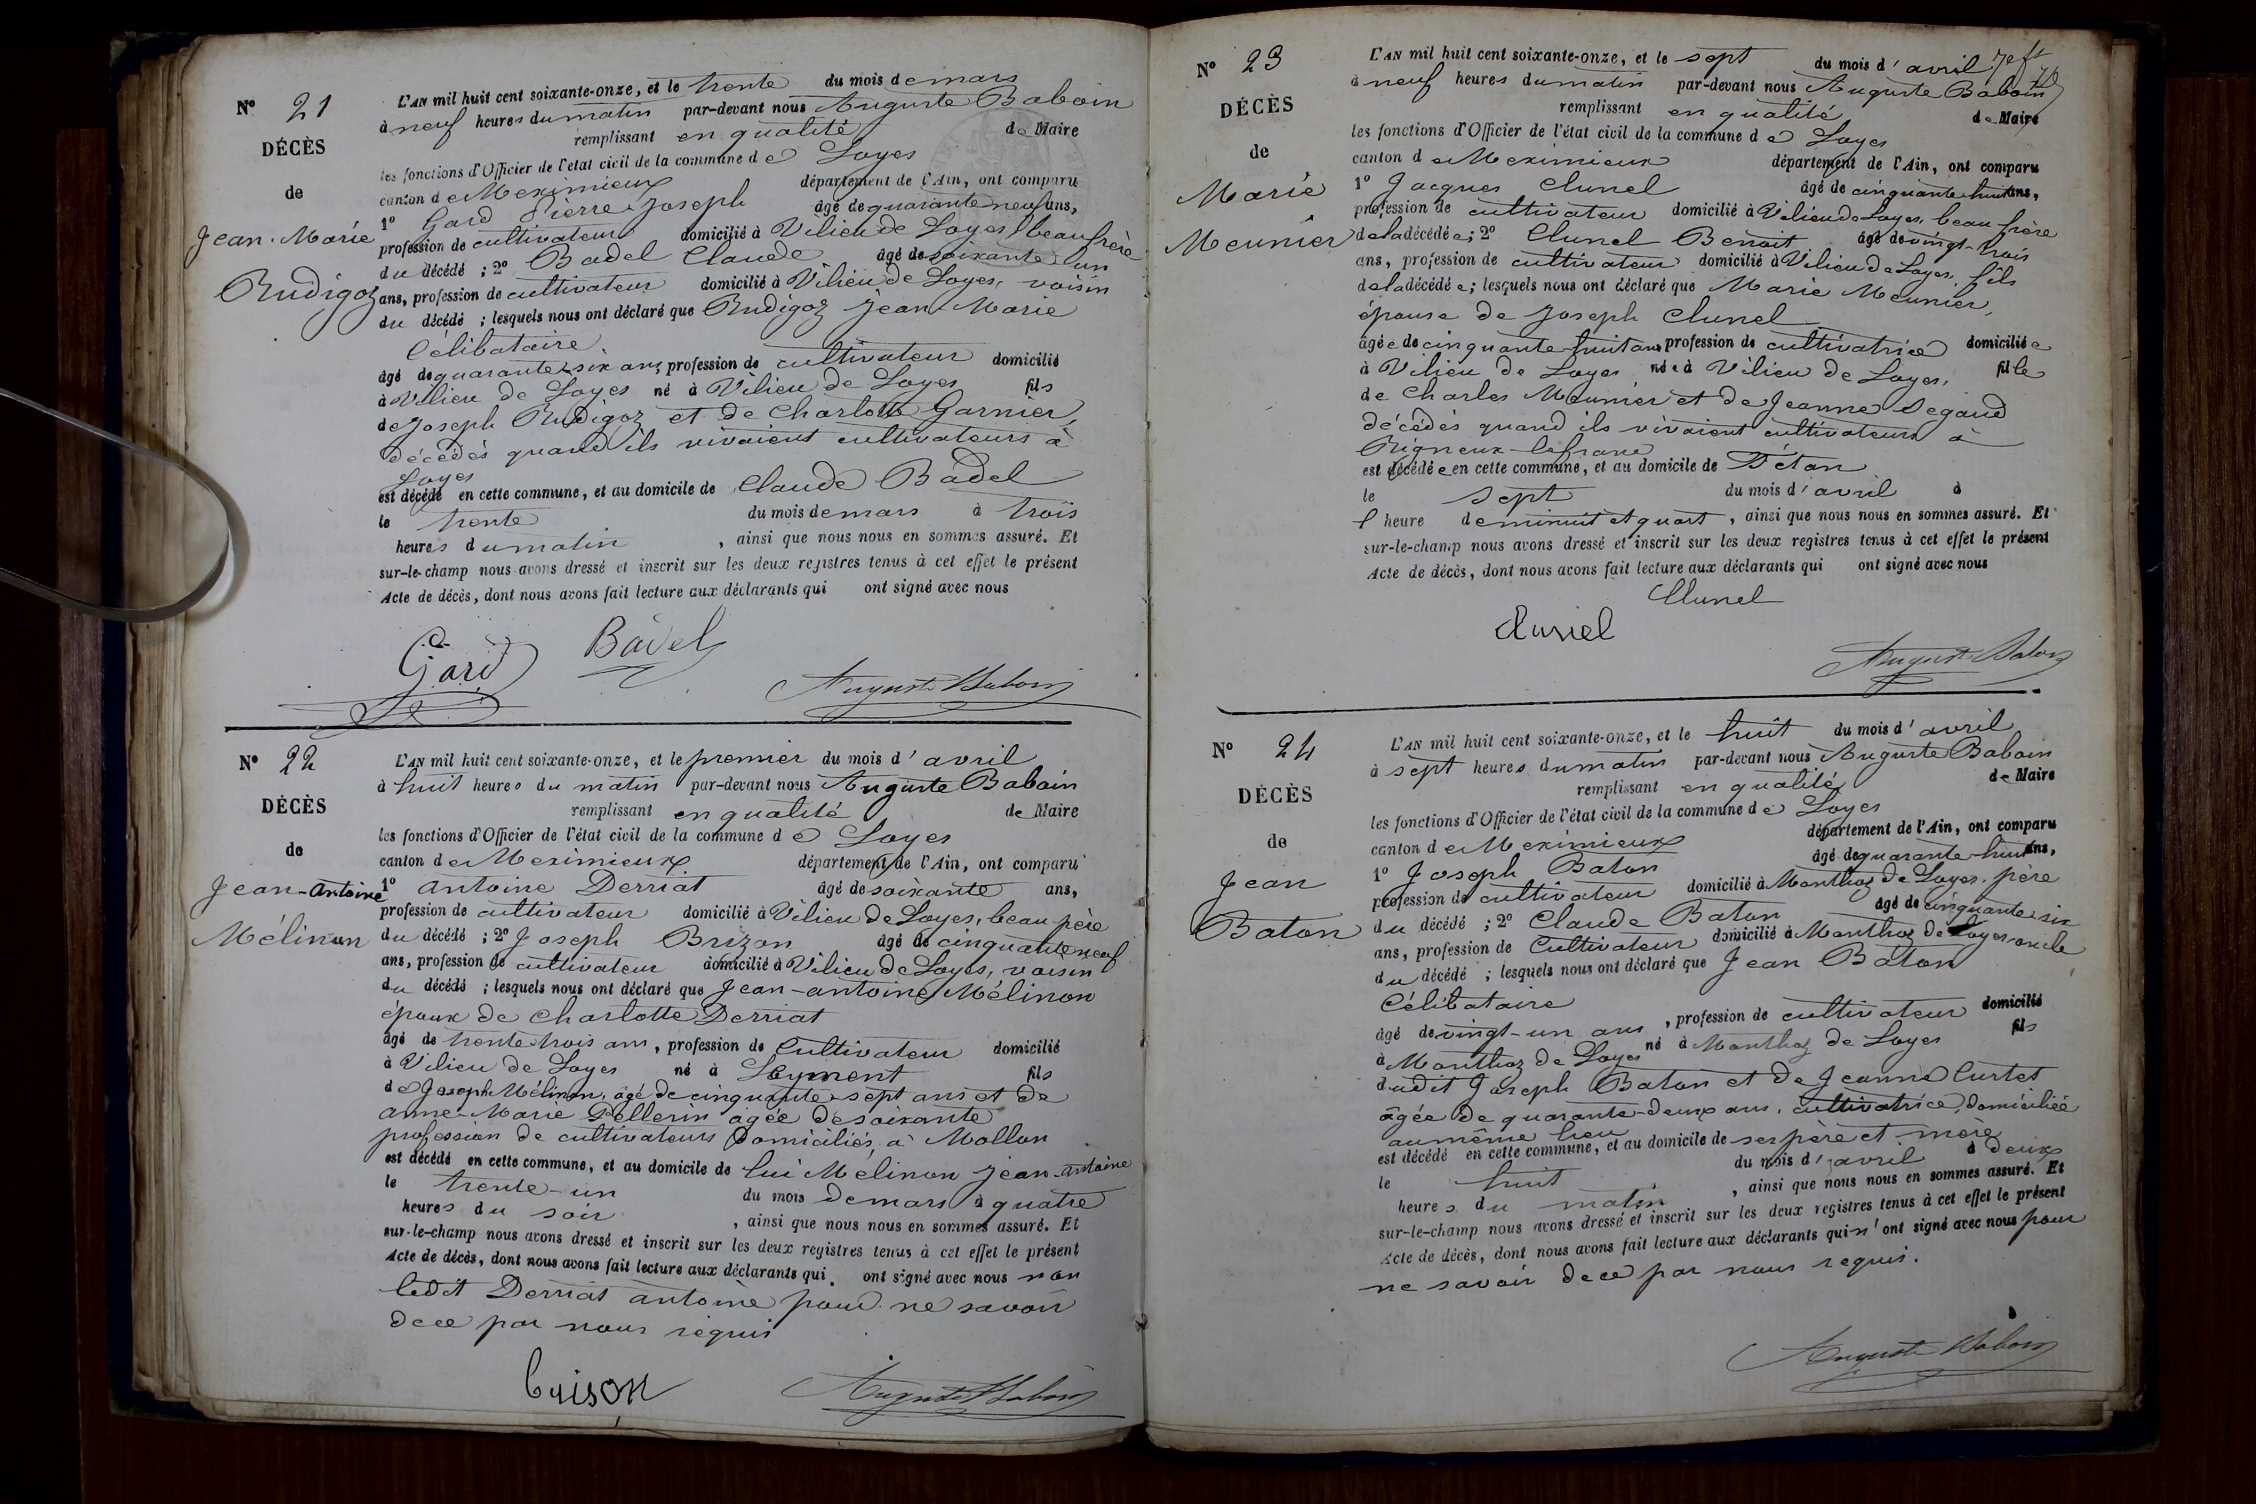 N° 21
DÉCÈS
de
Jean-Marie
Rudigoz
L'AN mil huit cent soixante-onze, et le trente du mois de mars
à neuf heures du matin par-devant nous Auguste Baboin
remplissant en qualité de Maire
les fonctions d'Officier de l'état civil de la commune de Loyes
canton de Meximieux département de l'Ain, ont comparu
1° Gard Pierre Joseph âgé de quarante neuf ans,
profession de cultivateur domicilié à Vilieu de Loyes beau frère
du décédé ; 2° Badel Claude âgé de soixante un
ans, profession de cultivateur domicilié à Vilieu de Loyes, voisin
du décédé ; lesquels nous ont déclaré que Rudigoz Jean-Marie
Célibataire.
âgé de quarante-six ans, profession de cultivateur domicilié
à Vilieu de Loyes né à Vilieu de Loyes fils
de Joseph Rudigoz et de Charlotte Garnier,
décédés quand ils vivaient cultivateurs à
Loyes
est décédé en cette commune, et au domicile de Claude Badel
le trente du mois de mars à trois
heures du matin , ainsi que nous nous en sommes assuré. Et
sur-le-champ nous avons dressé et inscrit sur les deux registres tenus à cet effet le présent
Acte de décès, dont nous avons fait lecture aux déclarants qui ont signé avec nous
Gard Badel
Auguste Baboin
N° 22
DÉCÈS
de
Jean-Antoine
Mélinon
L'AN mil huit cent soixante-onze, et le premier du mois d'avril
à huit heures du matin par-devant nous Auguste Baboin
remplissant en qualité de Maire
les fonctions d'Officier de l'état civil de la commune de Loyes
canton de Meximieux département de l'Ain, ont comparu
1° Antoine Derriat âgé de soixante ans,
profession de cultivateur domicilié à Vilieu de Loyes, beau père
du décédé ; 2° Joseph Brizon âgé de cinquante neuf
ans, profession de cultivateur domicilié à Vilieu de Loyes, voisin
du décédé ; lesquels nous ont déclaré que Jean-antoine Mélinon
époux de Charlotte Derriat
âgé de trente trois ans, profession de Cultivateur domicilié
à Vilieu de Loyes né à Leyment fils
de Joseph Mélinon, âgé de cinquante sept ans et de
anne-Marie Pellerin agée de soixante
profession de cultivateurs Domiciliés à Mollon
est décédé en cette commune, et au domicile de lui Mélinon Jean-antoine
le trente-un du mois de mars à quatre
heures du soir , ainsi que nous nous en sommes assuré. Et
sur-le-champ nous avons dressé et inscrit sur les deux registres tenus à cet effet le présent
Acte de décès, dont nous avons fait lecture aux déclarants qui ont signé avec nous non
ledit Derriat antoine pour ne savoir
de ce par nous requis
brison
Auguste Baboin
N° 23
DÉCÈS
de
Marie
Meunier
L'AN mil huit cent soixante-onze, et le sept du mois d'avril
à neuf heures du matin par-devant nous Auguste Baboin
remplissant en qualité de Maire
les fonctions d'Officier de l'état civil de la commune de Loyes
canton de Meximieux département de l'Ain, ont comparu
1° Jacques Clunel âgé de cinquante-huit ans,
profession de cultivateur domicilié à Vilieu de Loyes, beau frère
de la décédée ; 2° Clunel Benoit âgé de vingt-trois
ans, profession de cultivateur domicilié à Vilieu de Loyes, fils
de la décédée ; lesquels nous ont déclaré que Marie Meunier,
épouse de Joseph Clunel
âgée de cinquante-huit ans profession de cultivatrice domiciliée
à Vilieu de Loyes née à Vilieu de Loyes, fille
de Charles Meunier et de Jeanne Segaud
décédés quand ils vivaient cultivateurs à
Rigneux-lefranc
est décédée en cette commune, et au domicile de Bétan
le sept du mois d'avril à
l'heure de minuit et quart , ainsi que nous nous en sommes assuré. Et
sur-le-champ nous avons dressé et inscrit sur les deux registres tenus à cet effet le présent
Acte de décès, dont nous avons fait lecture aux déclarants qui ont signé avec nous
Clunel
Clunel
Auguste Baboin
N° 24
DÉCÈS
de
Jean
Baton
L'AN mil huit cent soixante-onze, et le huit du mois d'avril
à sept heures du matin par-devant nous Auguste Baboin
remplissant en qualité de Maire
les fonctions d'Officier de l'état civil de la commune de Loyes
canton de Meximieux département de l'Ain, ont comparu
1° Joseph Baton âgé de quarante-huit ans,
profession de cultivateur domicilié à Monthoz de Loyes, père
du décédé ; 2° Claude Baton âgé de cinquante-six
ans, profession de Cultivateur domicilié à Monthoz de Loyes oncle
du décédé ; lesquels nous ont déclaré que Jean Baton
Célibataire
âgé de vingt-un ans , profession de cultivateur domicilié
à Monthoz de Loyes né à Monthoz de Loyes fils
dudit Joseph Baton et de Jeanne Curtet
âgée de quarante-deux ans, cultivatrice, domiciliée
au même lieu
est décédé en cette commune, et au domicile de ses père et mère
le huit du mois d'avril à deux
heures du matin , ainsi que nous nous en sommes assuré. Et
sur-le-champ nous avons dressé et inscrit sur les deux registres tenus à cet effet le présent
Acte de décès, dont nous avons fait lecture aux déclarants qui n'ont signé avec nous pour
ne savoir de ce par nous requis.
Auguste Baboin